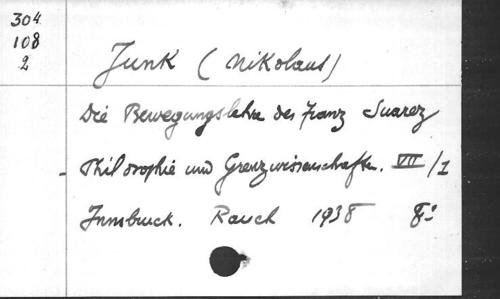 304
108
2
Junk (Nikolaus)
Die Bewegungslehre des Franz Suarez
- Philosophie und Grenzwissenschaften. VII/1
Innsbruck. Rauch 1938 8º